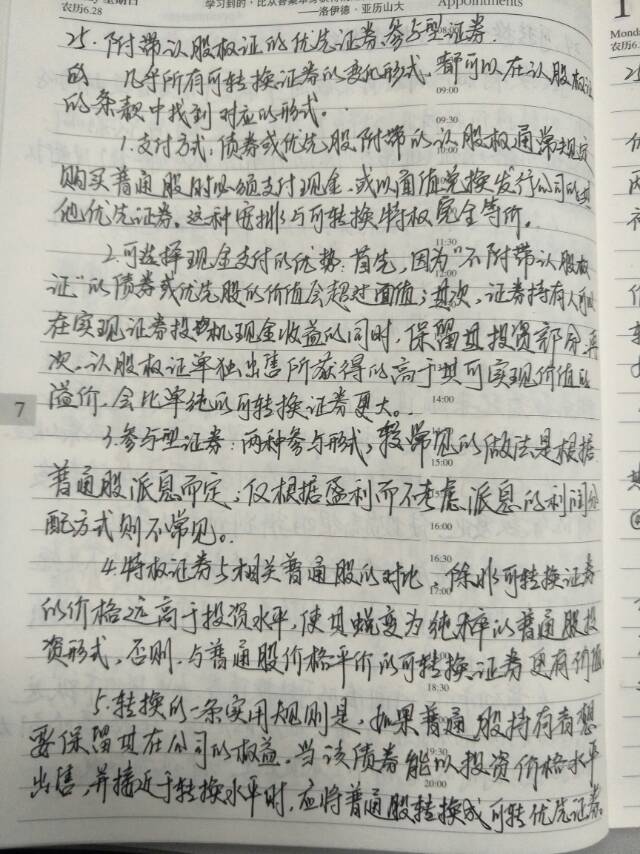 农历6.28
——洛伊德·亚历山大
Appointments
25.附带认股权证的优先证券.参与型证券.
的 几乎所有可转换证券的变化形式,都可以在认股权证
的条款中找到对应的形式。
1.支付方式:债券或优先股附带的认股权通常规定
购买普通股时必须支付现金,或以面值兑换发行公司的其
他优先证券。这种安排与可转换特权完全等价。
2.可选择现金支付的优势:首先,因为"不附带认股权
证"的债券或优先股的价值会超过面值;其次,证券持有人可以
在实现证券投机现金收益的同时,保留其投资部分.再
次,认股权证单独出售所获得的高于其可实现价值的
溢价,会比单纯的可转换证券更大。
3.参与型证券:两种参与形式,较常见的做法是根据
普通股派息而定;仅根据盈利而不考虑派息的利润分
配方式则不常见。
4.特权证券与相关普通股的对比:除非可转换证券
的价格远高于投资水平,使其蜕变为纯粹的普通股投
资形式,否则,与普通股价格平价的可转换证券更有价值.
5.转换的一条实用规则是,如果普通股持有者想
要保留其在公司的权益,当该债券能以投资价格水平
出售,并接近于转换水平时,应将普通股转换成可转优先证券.
7
09:00
09:30
10:00
11:30
12:00
14:00
15:00
16:00
16:30
17:00
18:30
19:30
20:00